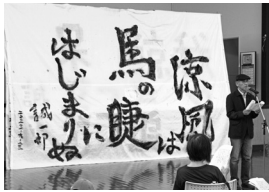 涼風は
馬の睫に
はじまりぬ
誠一郎